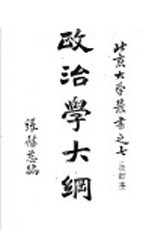 北京大學叢書之七(改訂本)
政治學大綱
張慰慈編